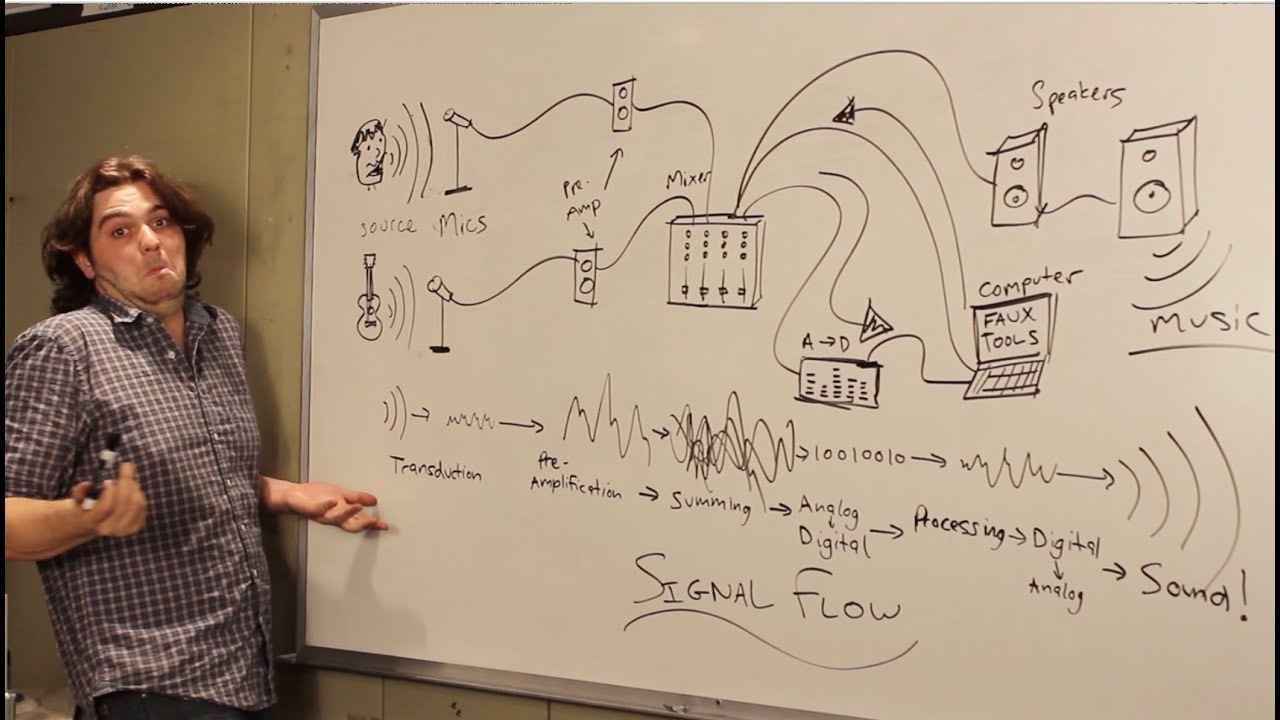 Speakers
Pre-
Amp
Mixer
source Mics
computer
FAUX
TOOLS
MUSIC
A → D
10010010
Transduction
Pre-
Amplification
Summing
Analog
Digital
Processing
Digital
Analog
Sound!
SIGNAL FLOW